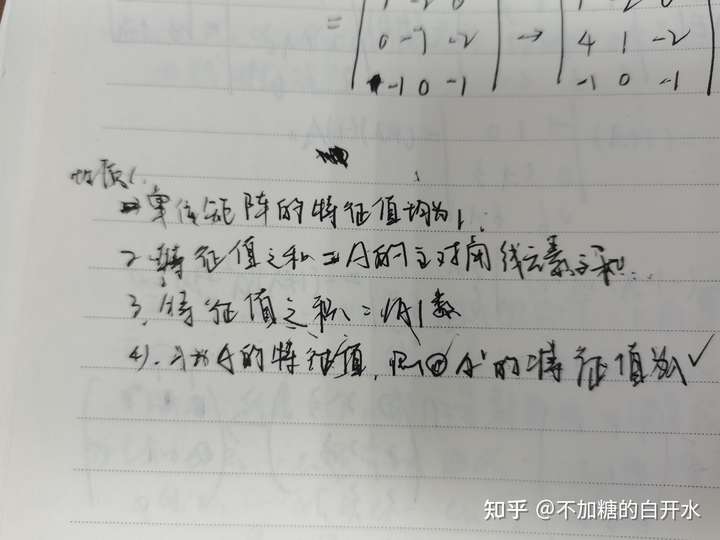 = | 1 -2 0 | → | 1 -2 0 |
0 -7 -2 4 1 -2
-1 0 -1 -1 0 -1
性质:
单位矩阵的特征值均为1.
2. 特征值之和=A的主对角线元素之和.
3. 特征值之积=|A|数
4). λ为A的特征值, 则 A 的特征值为λ
知乎 @不加糖的白开水